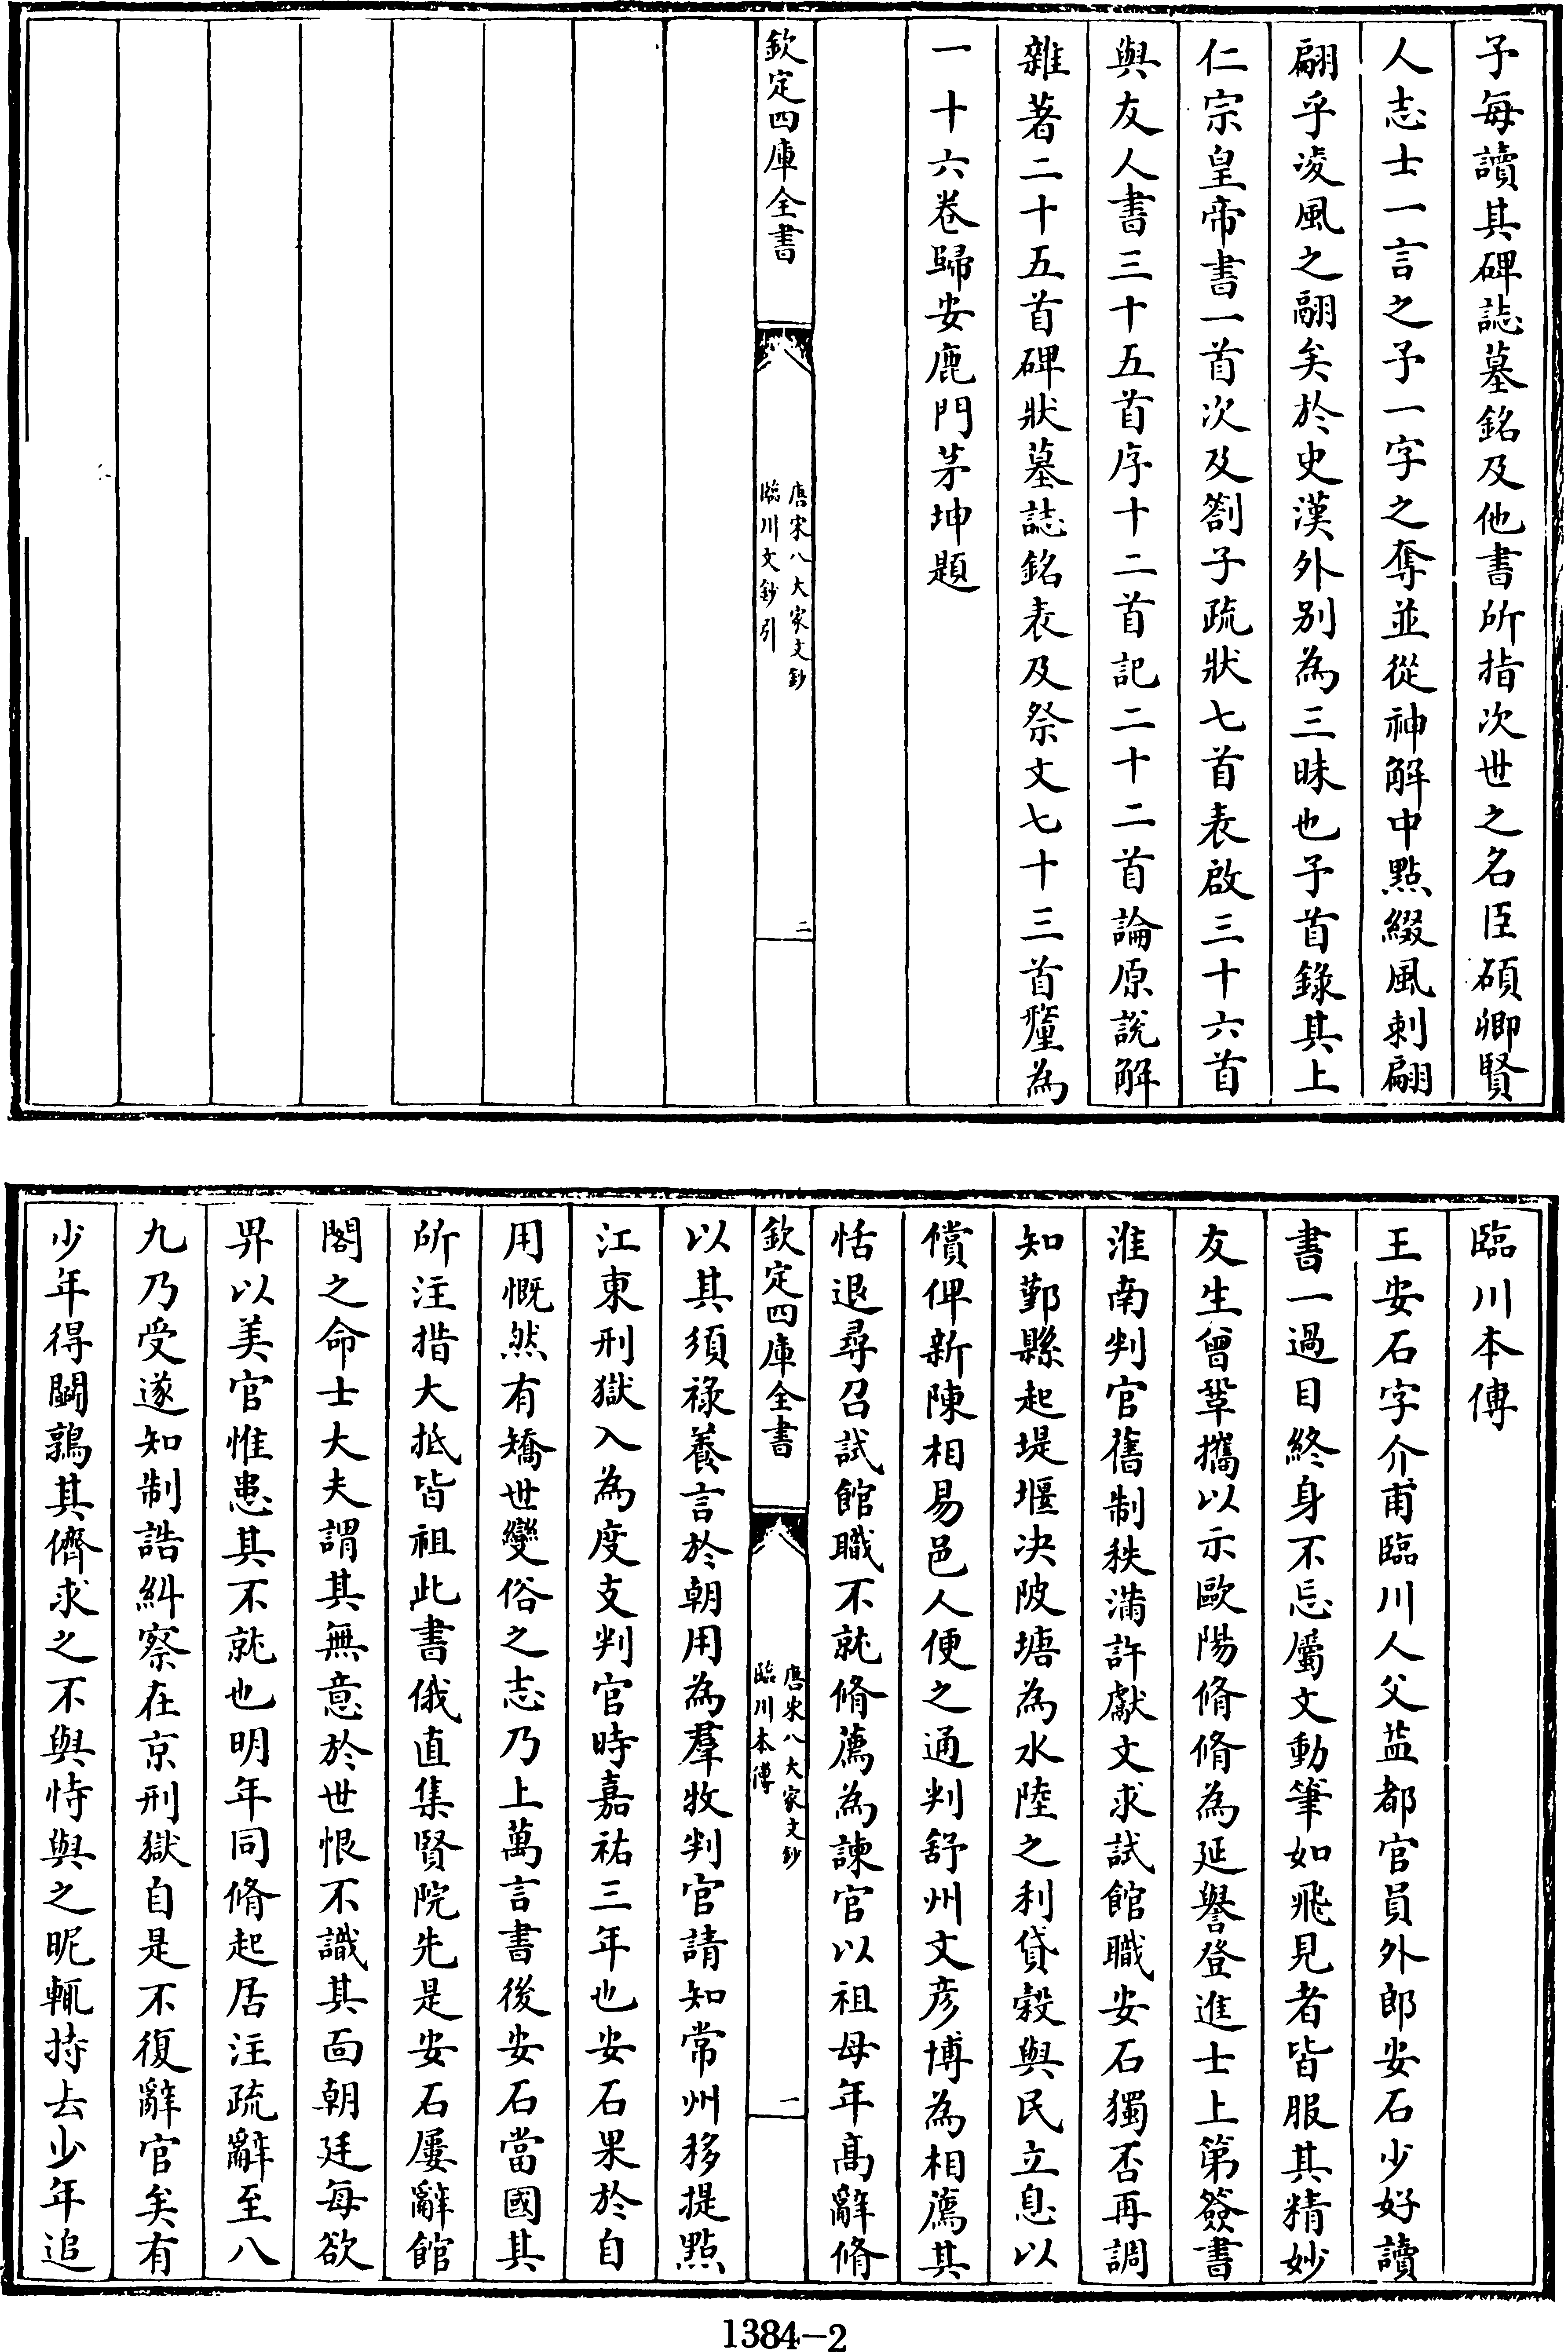 予每讀其碑誌墓銘及他書所指次世之名臣碩卿賢
人志士一言之予一字之奪並從神解中點綴風刺翩
翩乎凌風之翮矣於史漢外别為三昧也予首錄其上
仁宗皇帝書一首次及劄子疏狀七首表啟三十六首
與友人書三十五首序十二首記二十二首論原說解
雜著二十五首碑狀墓誌銘表及祭文七十三首釐為
一十六卷歸安鹿門茅坤題
欽定四庫全書
唐宋八大家文鈔
臨川文鈔引
二
臨川本傳
王安石字介甫臨川人父益都官員外郎安石少好讀
書一過目終身不忘屬文動筆如飛見者皆服其精妙
友生曾鞏攜以示歐陽脩脩為延譽登進士上第簽書
淮南判官舊制秩滿許獻文求試館職安石獨否再調
知鄞縣起堤堰决陂塘為水陸之利貸穀與民立息以
償俾新陳相易邑人便之通判舒州文彦博為相薦其
恬退尋召試館職不就脩薦為諫官以祖母年高辭脩
欽定四庫全書
唐宋八大家文鈔
臨川本傳
一
以其須祿養言於朝用為羣牧判官請知常州移提點
江東刑獄入為度支判官時嘉祐三年也安石果於自
用慨然有矯世變俗之志乃上萬言書後安石當國其
所注措大抵皆祖此書俄直集賢院先是安石屢辭館
閣之命士大夫謂其無意於世恨不識其面朝廷每欲
畀以美官惟患其不就也明年同脩起居注疏辭至八
九乃受遂知制誥糾察在京刑獄自是不復辭官矣有
少年得鬭鶉其儕求之不與恃與之昵輒持去少年追
1384-2